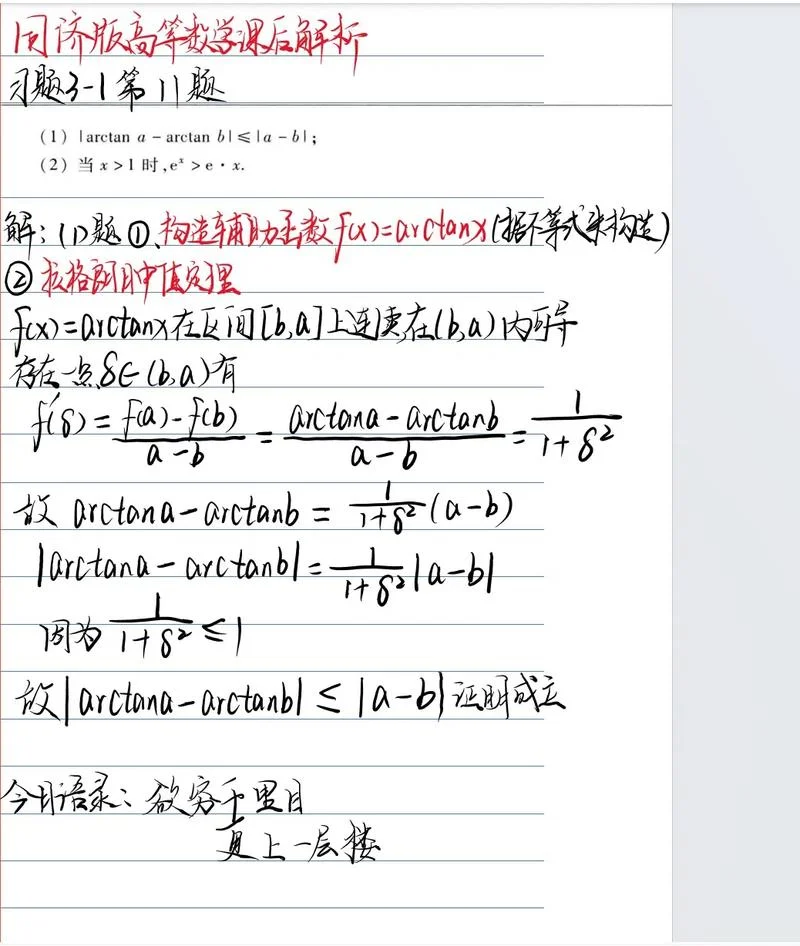 同济版高等数学课后解析
习题3-1第11题
(1) |arctan a - arctan b| ≤ |a - b|;
(2) 当 x > 1 时, eˣ > e · x.
解: (1)题 ①、构造辅助函数 f(x)=arctanx (据不等式来构造)
② 拉格朗日中值定理
f(x)=arctanx在区间[b,a]上连续,在(b,a)内可导
存在一点δ∈(b,a)有
f'(δ) = (f(a)-f(b))/(a-b) = (arctana-arctanb)/(a-b) = 1/(1+δ²)
故 arctana-arctanb = 1/(1+δ²) (a-b)
|arctana-arctanb| = 1/(1+δ²) |a-b|
因为 1/(1+δ²) ≤ 1
故|arctana-arctanb| ≤ |a-b| 证明成立
今日语录: 欲穷千里目
更上一层楼